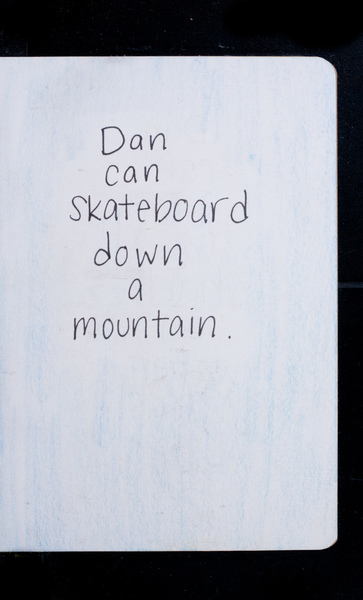 Dan
can
skateboard
down
a
mountain.